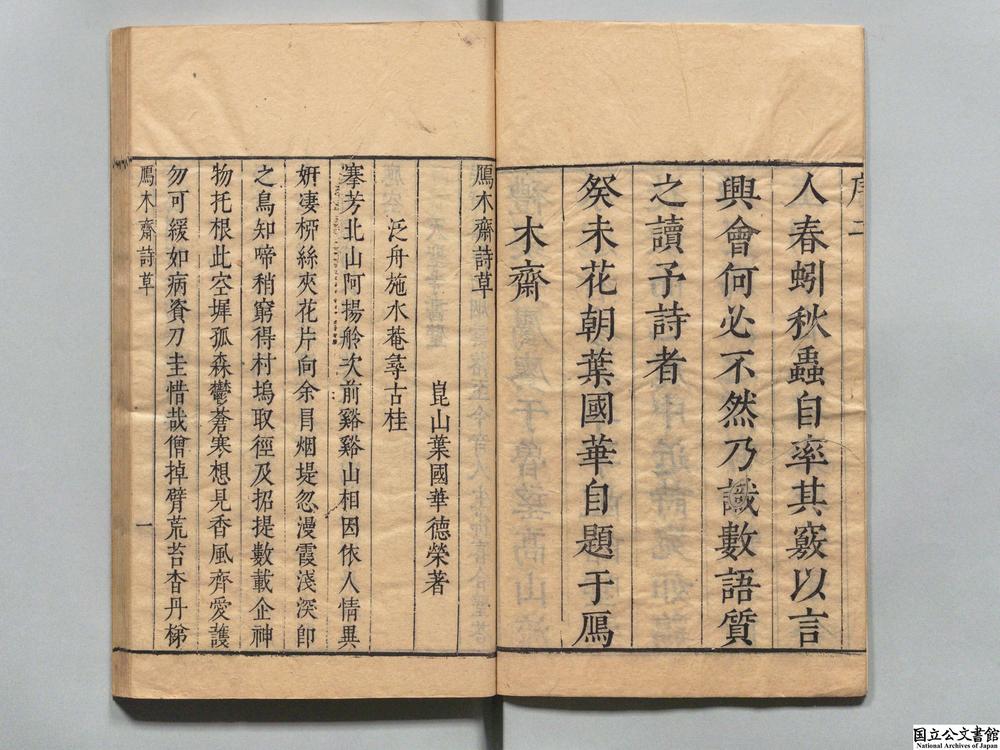 序二
人春蚓秋蟲自率其竅以言
興會何必不然乃識數語質
之讀予詩者
癸未花朝葉國華自題于鴈
木齋
鴈木齋詩草
崑山葉國華德榮著
泛舟施水菴尋古桂
搴芳北山阿揚舲次前谿谿山相因依人情異
妍凄桺絲夾花片向余目烟堤忽漫霞淺深卽
之鳥知啼稍窮得村塢取徑及招提數載企神
物托根此空墀孤森鬱蒼寒想見香風齊愛護
勿可緩如病資刀圭惜哉僧掉臂荒苔杳丹梯
鴈木齋詩草
一
国立公文書館
National Archives of Japan